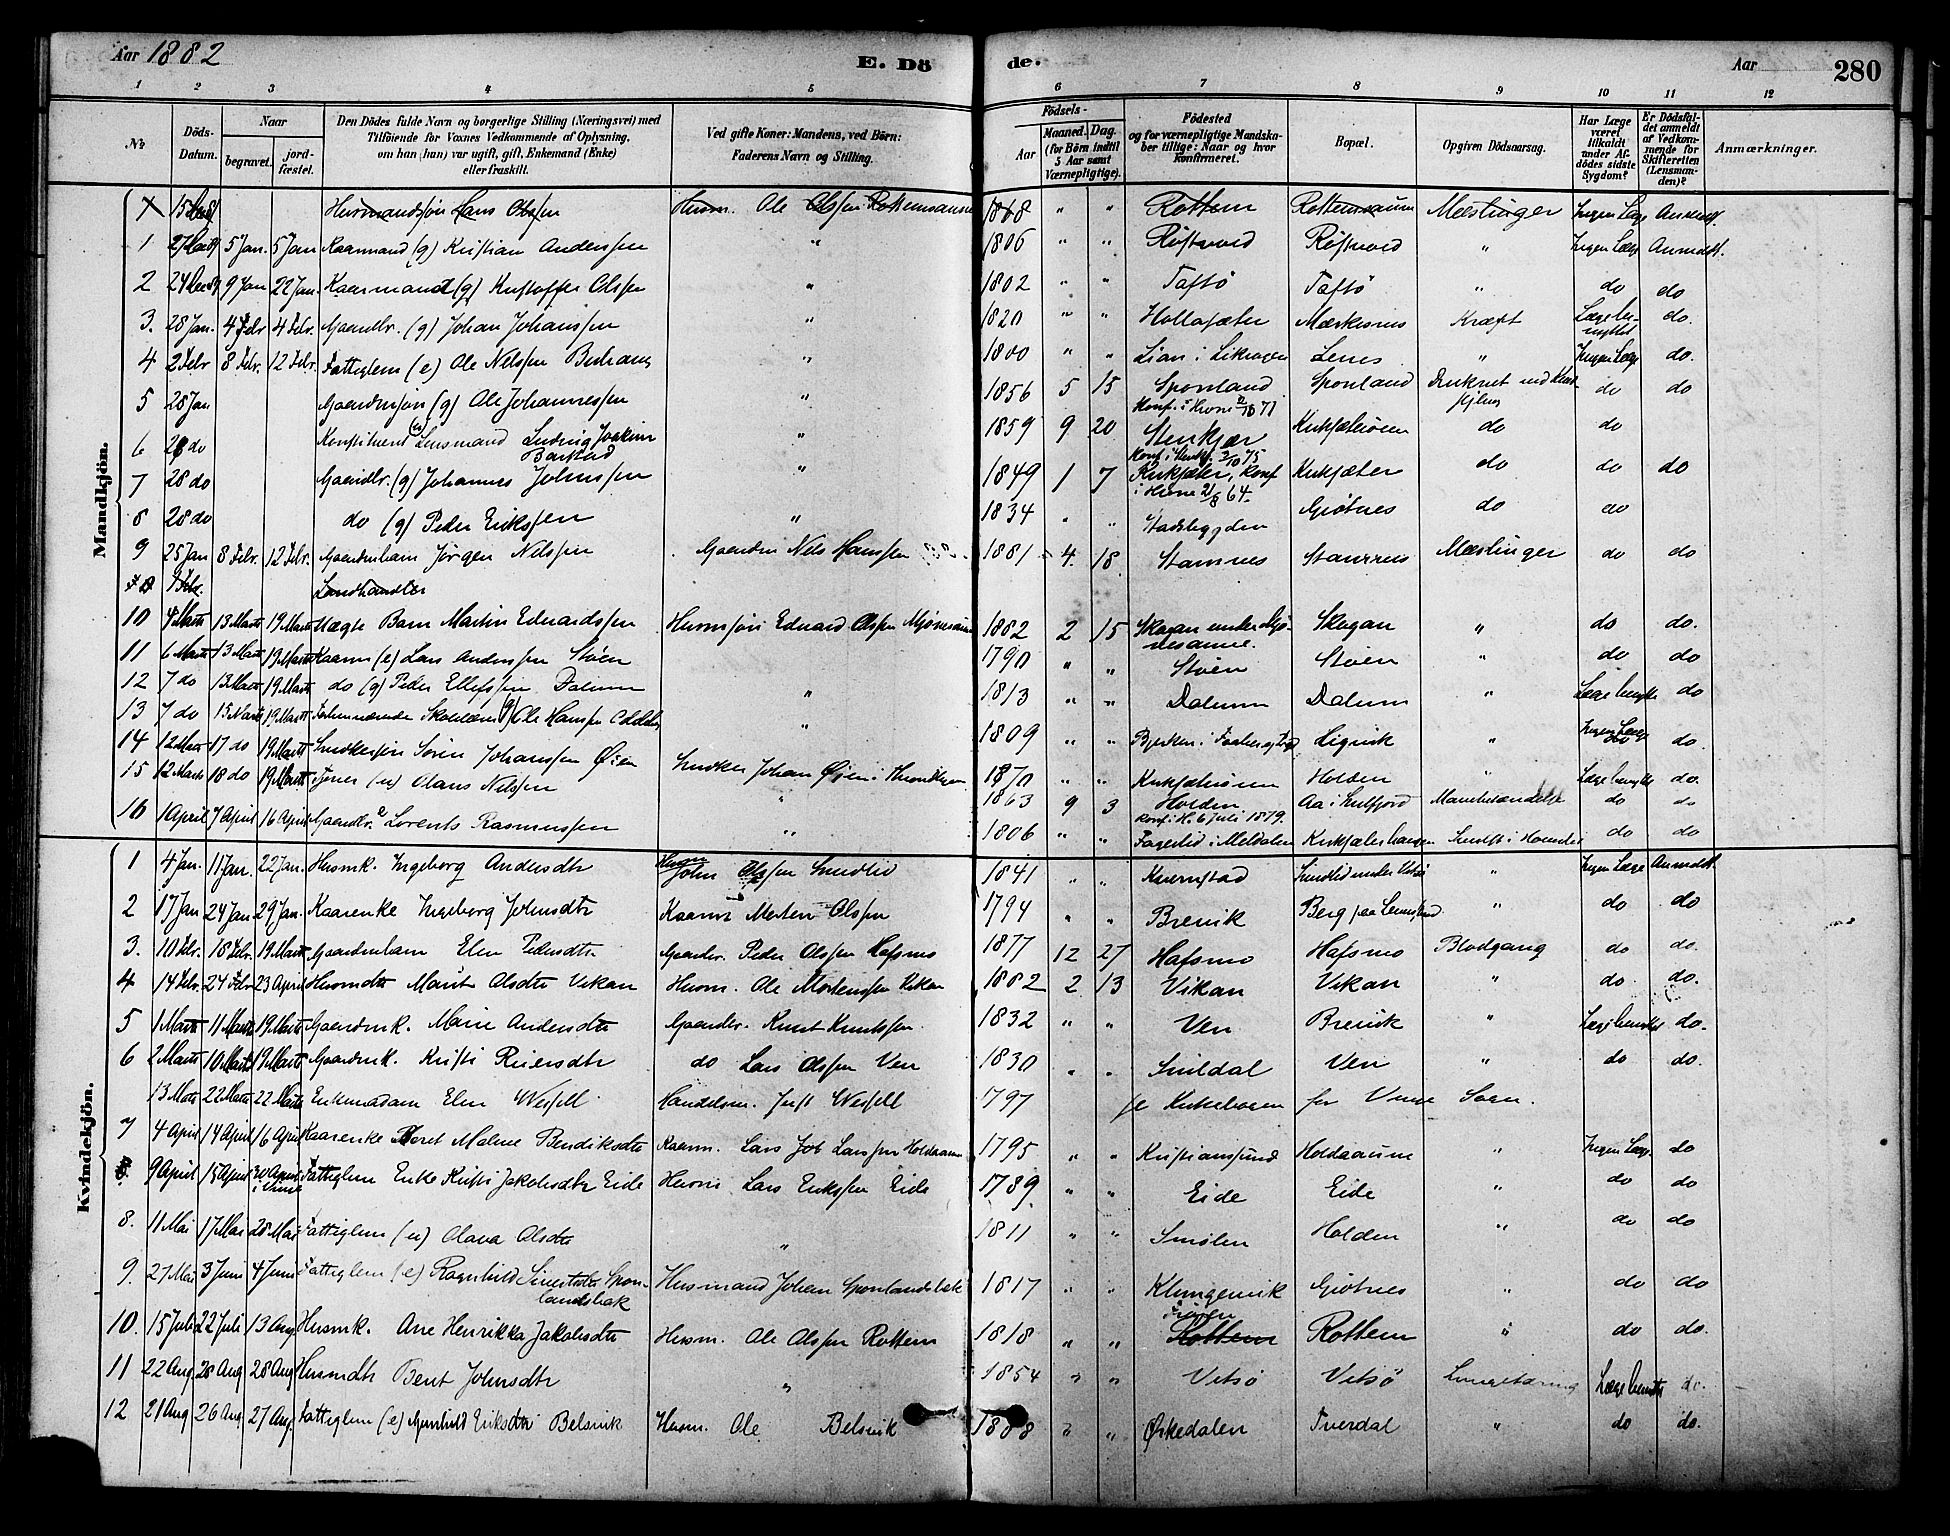 Aar 1882
E. Döde.
Aar
280
1 2 3 4 5 6 7 8 9 10 11 12
No
Döds-Datum.
Naar
begravet.
jord-fæstet.
Den Dödes fulde Navn og borgerlige Stilling (Næringsvei) med Tilföiende for Voxnes Vedkommende af Oplysning, om han (hun) var ugift, gift, Enkemand (Enke) eller fraskilt.
Ved gifte Koner: Mandens, ved Börn: Faderens Navn og Stilling.
Födsels-
Aar
Maaned. Dag.
(for Börn indtil 5 Aar samt Værnepligtige).
Födested og for værnepligtige Mandskaber tillige: Naar og hvor Konfirmeret.
Bopæl.
Opgiven Dödsaarsag.
Har Læge været tilkaldt under Afdödes sidste Sygdom?
Er Dödsfaldet anmeldt af Vedkommende for Skifteretten (Lensmanden)?
Anmærkninger.
Mandkjön.
Husmandssön Hans Olssen Husm. Ole Olssen Rottemsaune 1868 " " Rottem Rottemsaunn Mæslinger Ingen Læge Anmeldt.
1 5 Jan. 5 Jan Kaarmand (g) Kristian Anderssen " 1806 " " Røstvold Røstvold " Ingen Læge Anmeldt.
2 9 Jan 22 Jan. Kaarmand (g) Kristoffer Olssen " 1802 " " Taftö Taftö " do do
3. 28 Jan. 4 Febr 4 Febr. Gaardbr. (g) Johan Johanssen " 1820 " " Hollasæter Mærkesnes Kræft Læge benyttet do.
4 2 Febr 8 Febr. 12 Febr. Fattiglem (e) Ole Nilssen " 1800 " " Lian i Lenes " Ingen Læge do.
5 28 Jan Gaardmsön (g) Ole Johannessen " 1856 5 15 Sponland Sponland Druknet ved do do
6 28 do Konstitueret Lensmand Ludvig Joakim " 1859 9 20 Stenkjær do do
7 28 do Gaardbr. (g) Johannes Johnssen " 1849 1 7 Kirksæter, Konf i Hevne 21/8 64. Kirksæter do do do
8 28 do do (g) Peder Erikssen " 1834 " " Stadsbygden Gjøtnes do do
9 25 Jan 8 Febr. 12 Febr. Gaardmbarn Jørgen Nilssen Gaardm Nils Hanssen 1881 4. 18. Stamnes Stamnes Mæslinger do do
Landhandler
10 4 Marts 13 Marts 19 Marts Uægte Barn Martin Eduardssen Husmsøn Eduard Olssen 1882 2 15 Skogan under Skogan " do do.
11 6 Marts 13 Marts 19 Marts Kaarm (e) Lars Anderssen Støen 1790 " " Støen Støen " do do
12 7 do 13 Marts 19 Marts do (g) Peder Ellefssen Dalum " 1813 " " Dalum Dalum " Læge benyttet do
13 7 do 15 Marts 19 Marts Forhenværende (g) Ole Hanssen " 1809 " " Ligvik " Ingen Læge do.
14 12 Marts 17 do 19 Marts Snedkersøn Søren Johanssen Øien Snedker Johan Øien i Throndhjem 1870 " " Kirksæterøren Holden " Læge benyttet do.
15 12 Marts 18 do 19 Marts Tjener (u) Olaus Nilssen " 1863 9 3 Holden Konf. i H. 6 Juli 1879. Aa i Snilfjord Mavebetændelse do do
16 1 April 7 April 16 April Gaardbr. Lorents Rasmussen " 1806 " " Fagerlid i Meldalen do do
Kvindekjön.
1 4 Jan. 11 Jan. 22 Jan. Husmk. Ingeborg Andersdtr John Olssen 1841 " " Kvernstad " Ingen Læge Anmeldt.
2 17 Jan 24 Jan 29 Jan. Kaarenke Ingeborg Johnsdtr Kaarm Morten Olssen 1794 " " Brevik Berg " do do
3. 10 Febr. 18 Febr. 19 Marts Gaardmbarn Elen Pedersdtr Gaardbr. Peder Olssen Hafsmo 1877 12 27 Hafsmo Hafsmo Blodgang do do.
4 14 Febr. 24 Febr 23 April Husmdtr Marit Olsdtr Vikan Husm. Ole Mortenssen Vikan 1882 2 13 Vikan Vikan " do do.
5 1 Marts 11 Marts 19 Marts Gaardmk. Marie Andersdtr Gaardbr. Knut Knutssen. 1832 " " Ven Brevik " Læge benyttet do.
6 2 Marts 10 Marts 19 Marts Gaardmk. Kristi Reiersdtr do Lars Olssen Ven 1830 " " Snildal Ven " do do.
13 Marts 22 Marts 22 Marts Enkemadam Elen Wessell Handelsm. Just Wessell 1797 se Kirkebogen for Vinje Sogn.
7 4 April 14 April 16 April Kaarenke Beret Malene Bendiksdtr Kaarm. Lars Job Larssen 1795 " " Kristianssund Holdaaune " Ingen Læge do
9 April 15 April 30 April i Vinje Fattiglem Enke Kristi Jakobsdtr Eide Husm Lars Erikssen Eide 1789 " " Eide Eide " do do
8. 11 Mai 17 Mai 28 Mai Fattiglem (u) Olava Olsdtr " 1811 " " Smølen Holden " do do
9. 27 Mai 3 Juni 4 Juni Fattiglem (e) Ragnhild Sponlandsbak Husmand Johan Sponlandsbak 1817 " " Klungervik Gjøtnes " do do
10. 15 Juli 22 Juli 13 Aug Husmk. Ane Henrikka Jakobsdtr Husm. Ole Olssen Rottem 1818 " " Frøien Rottem Rottem " do do.
11 22 Aug 28 Aug 28 Aug Husmdtr Berit Johnsdtr " 1854 " " Vitsö Vitsö Lungetæring Læge benyttet do.
12 21 Aug 26 Aug 27 Aug. Fattiglem (e) Gunhild Eriksdtr Belsvik Husm. Ole Belsvik 1808 " " Ørkedalen Tverdal " do do.